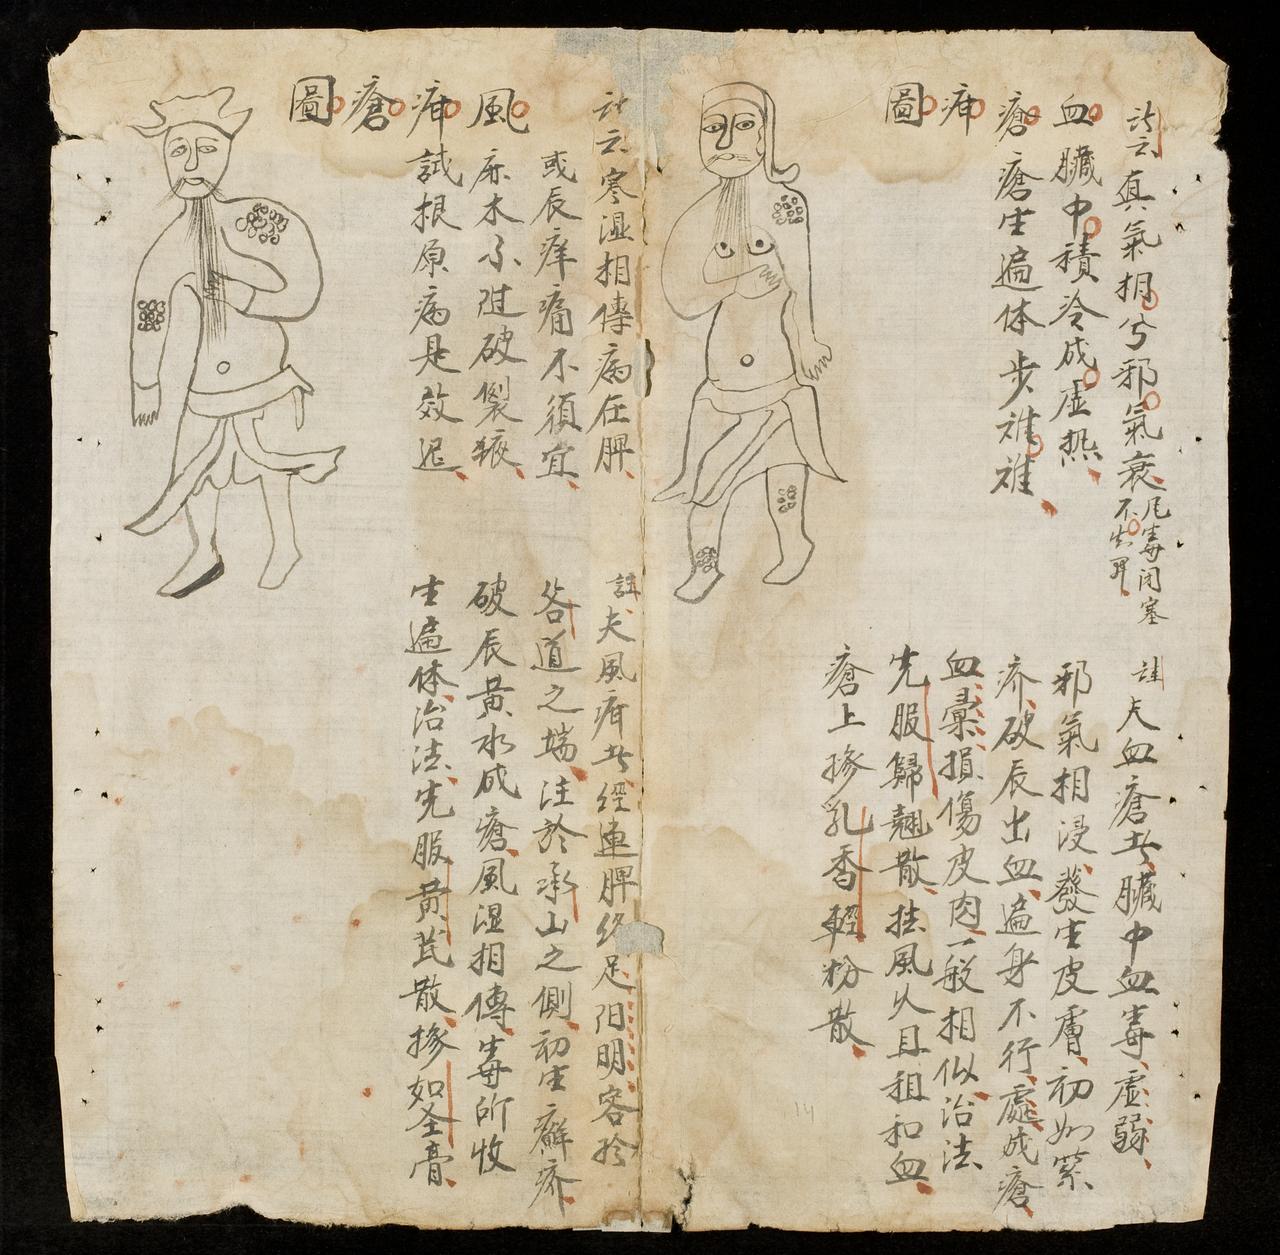 詩云真氣相兮邪氣衰尾毒閉塞
不出羅
血臟中積冷成虛热
瘡瘡生遍体步难难
疳
圖
註夫血瘡者臟中血毒虛弱
邪氣相浸發生皮膚初如紫
疥破辰出血遍身不行處成瘡
血彙損傷皮肉一般相似治法
先服歸翹散扶風火且祖和血
瘡上摻乳香輕粉散
詩云寒湿相傳病在脾
或辰痒痛不須宜
風麻木不[]破製
疳試根原病是效遲
瘡
圖
註夫風疳者經連脾終足阳明客於
谷道之端注於承山之側初生癬疥
破辰黄水成瘡風湿相傳毒所收
生遍体治法先服黄芪散摻如圣膏